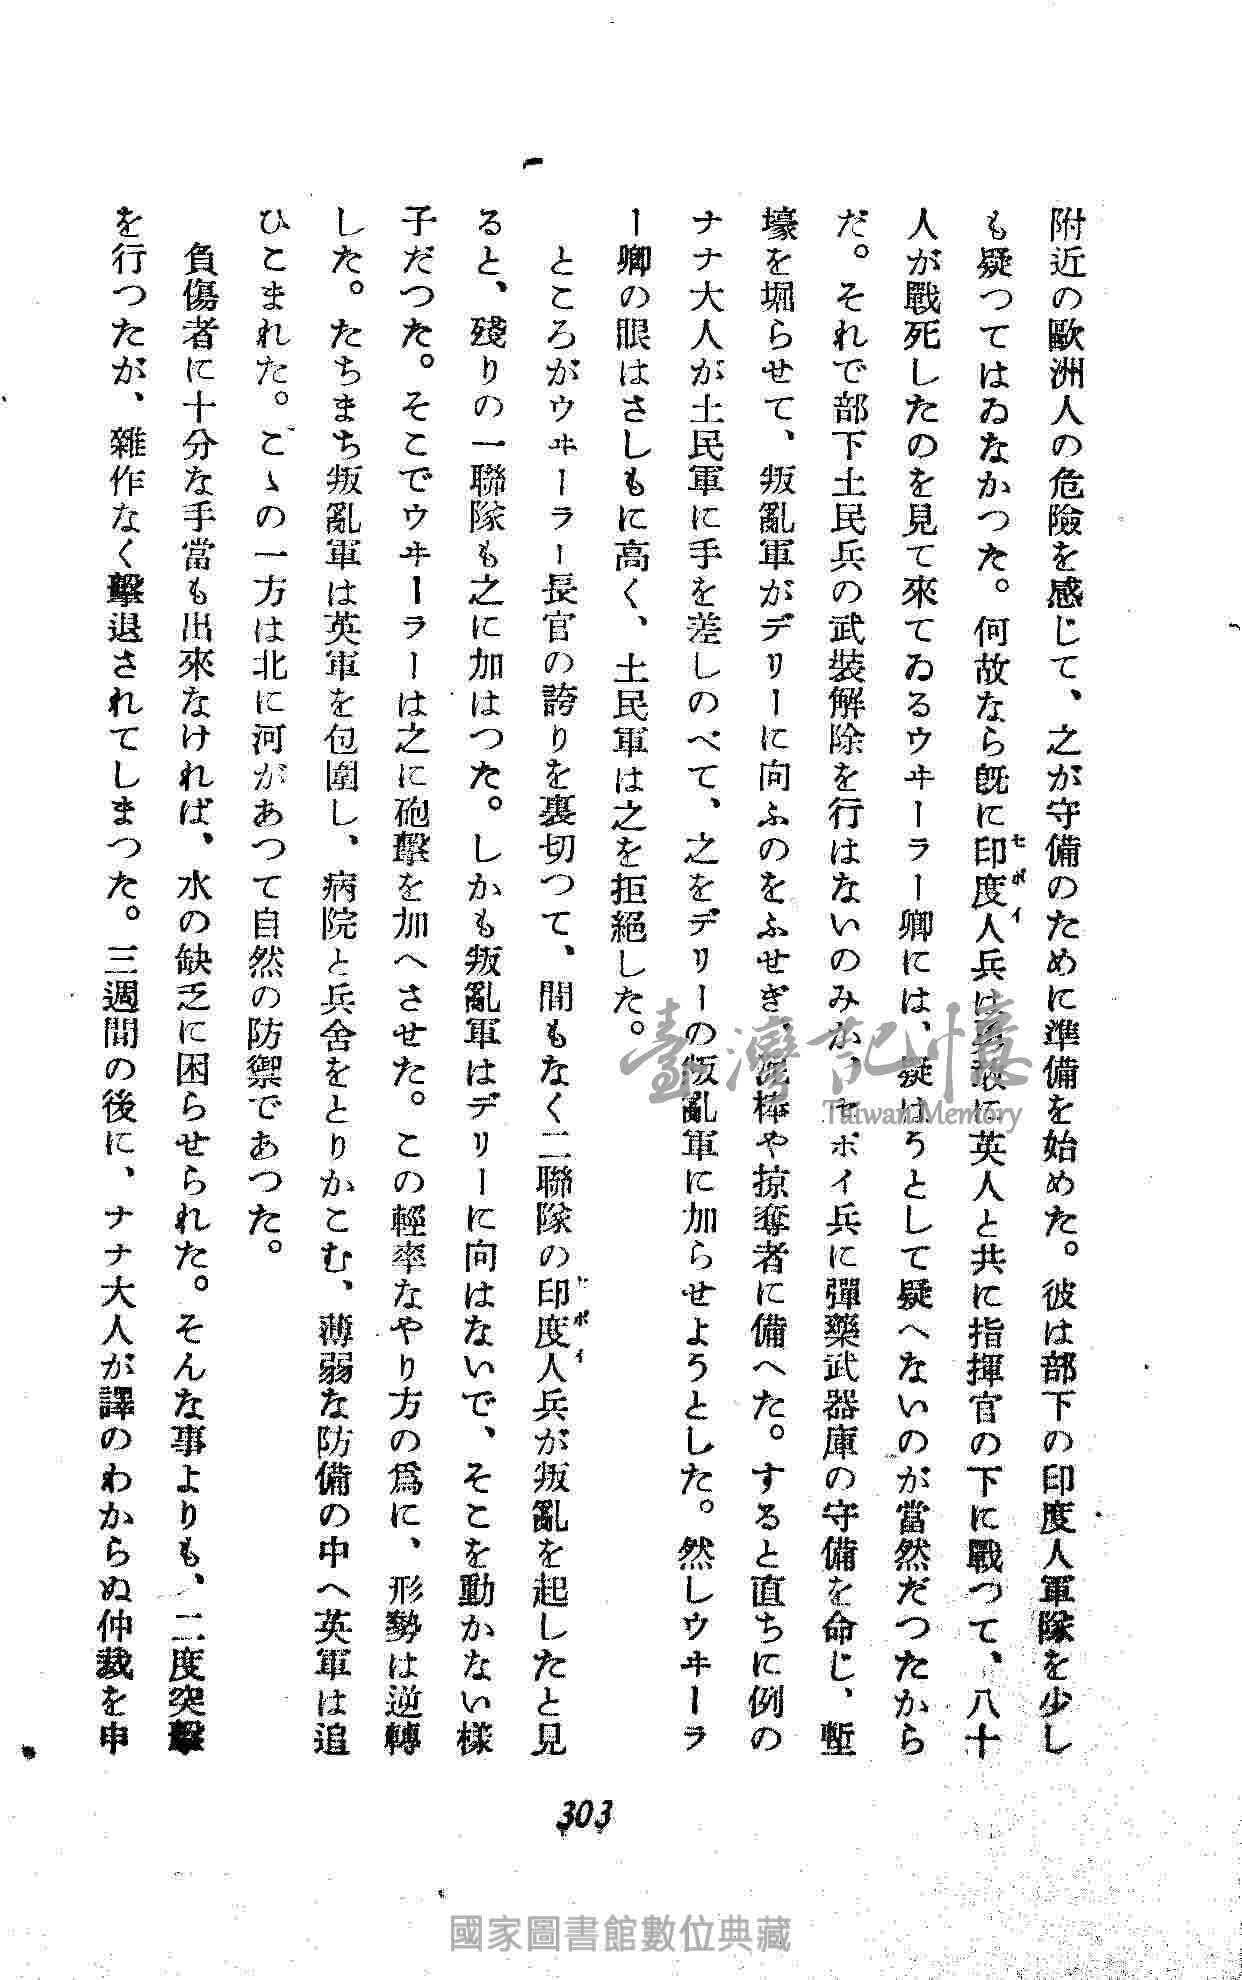 附近の歐洲人の危險を感じて、之が守備のために準備を始めた。彼は部下の印度人軍隊を少し
も疑つてはゐなかつた。何故なら既に印度人兵は勇敢に英人と共に指揮官の下に戰つて、八十
セポイ
人が戰死したのを見て來てゐるウヰーラー卿には、疑はうとして疑へないのが當然だつたから
だ。それで部下土民兵の武裝解除を行はないのみか、セポイ兵に彈藥武器庫の守備を命じ、塹
壕を堀らせて、叛亂軍がデリーに向ふのをふせぎ、棒や掠奪者に備へた。すると直ちに例の
ナナ大人が土民軍に手を差しのべて、之をデリーの叛亂軍に加らせようとした。然しウヰーラ
ー卿の眼はさしもに高く、土民軍は之を拒絕した。
ところがウヰーラー長官の誇りを裏切つて、間もなく二聯隊の印度人兵が叛亂を起したと見
セポイ
ると、殘りの一聯隊も之に加はつた。しかも叛亂軍はデリーに向はないで、そこを動かない樣
子だつた。そこでウヰーラーは之に砲擊を加へさせた。この輕率なやり方の爲に、形勢は逆轉
した。たちまち叛亂軍は英軍を包圍し、病院と兵舍をとりかこむ、薄弱な防備の中へ英軍は追
ひこまれた。こゝの一方は北に河があつて自然の防禦であつた。
負傷者に十分な手當も出來なければ、水の缺乏に困らせられた。そんな事よりも、二度突擊
を行つたが、雜作なく擊退されてしまつた。三週間の後に、ナナ大人が譯のわからぬ仲裁を申
303
臺灣記憶
Taiwan Memory
國家圖書館數位典藏